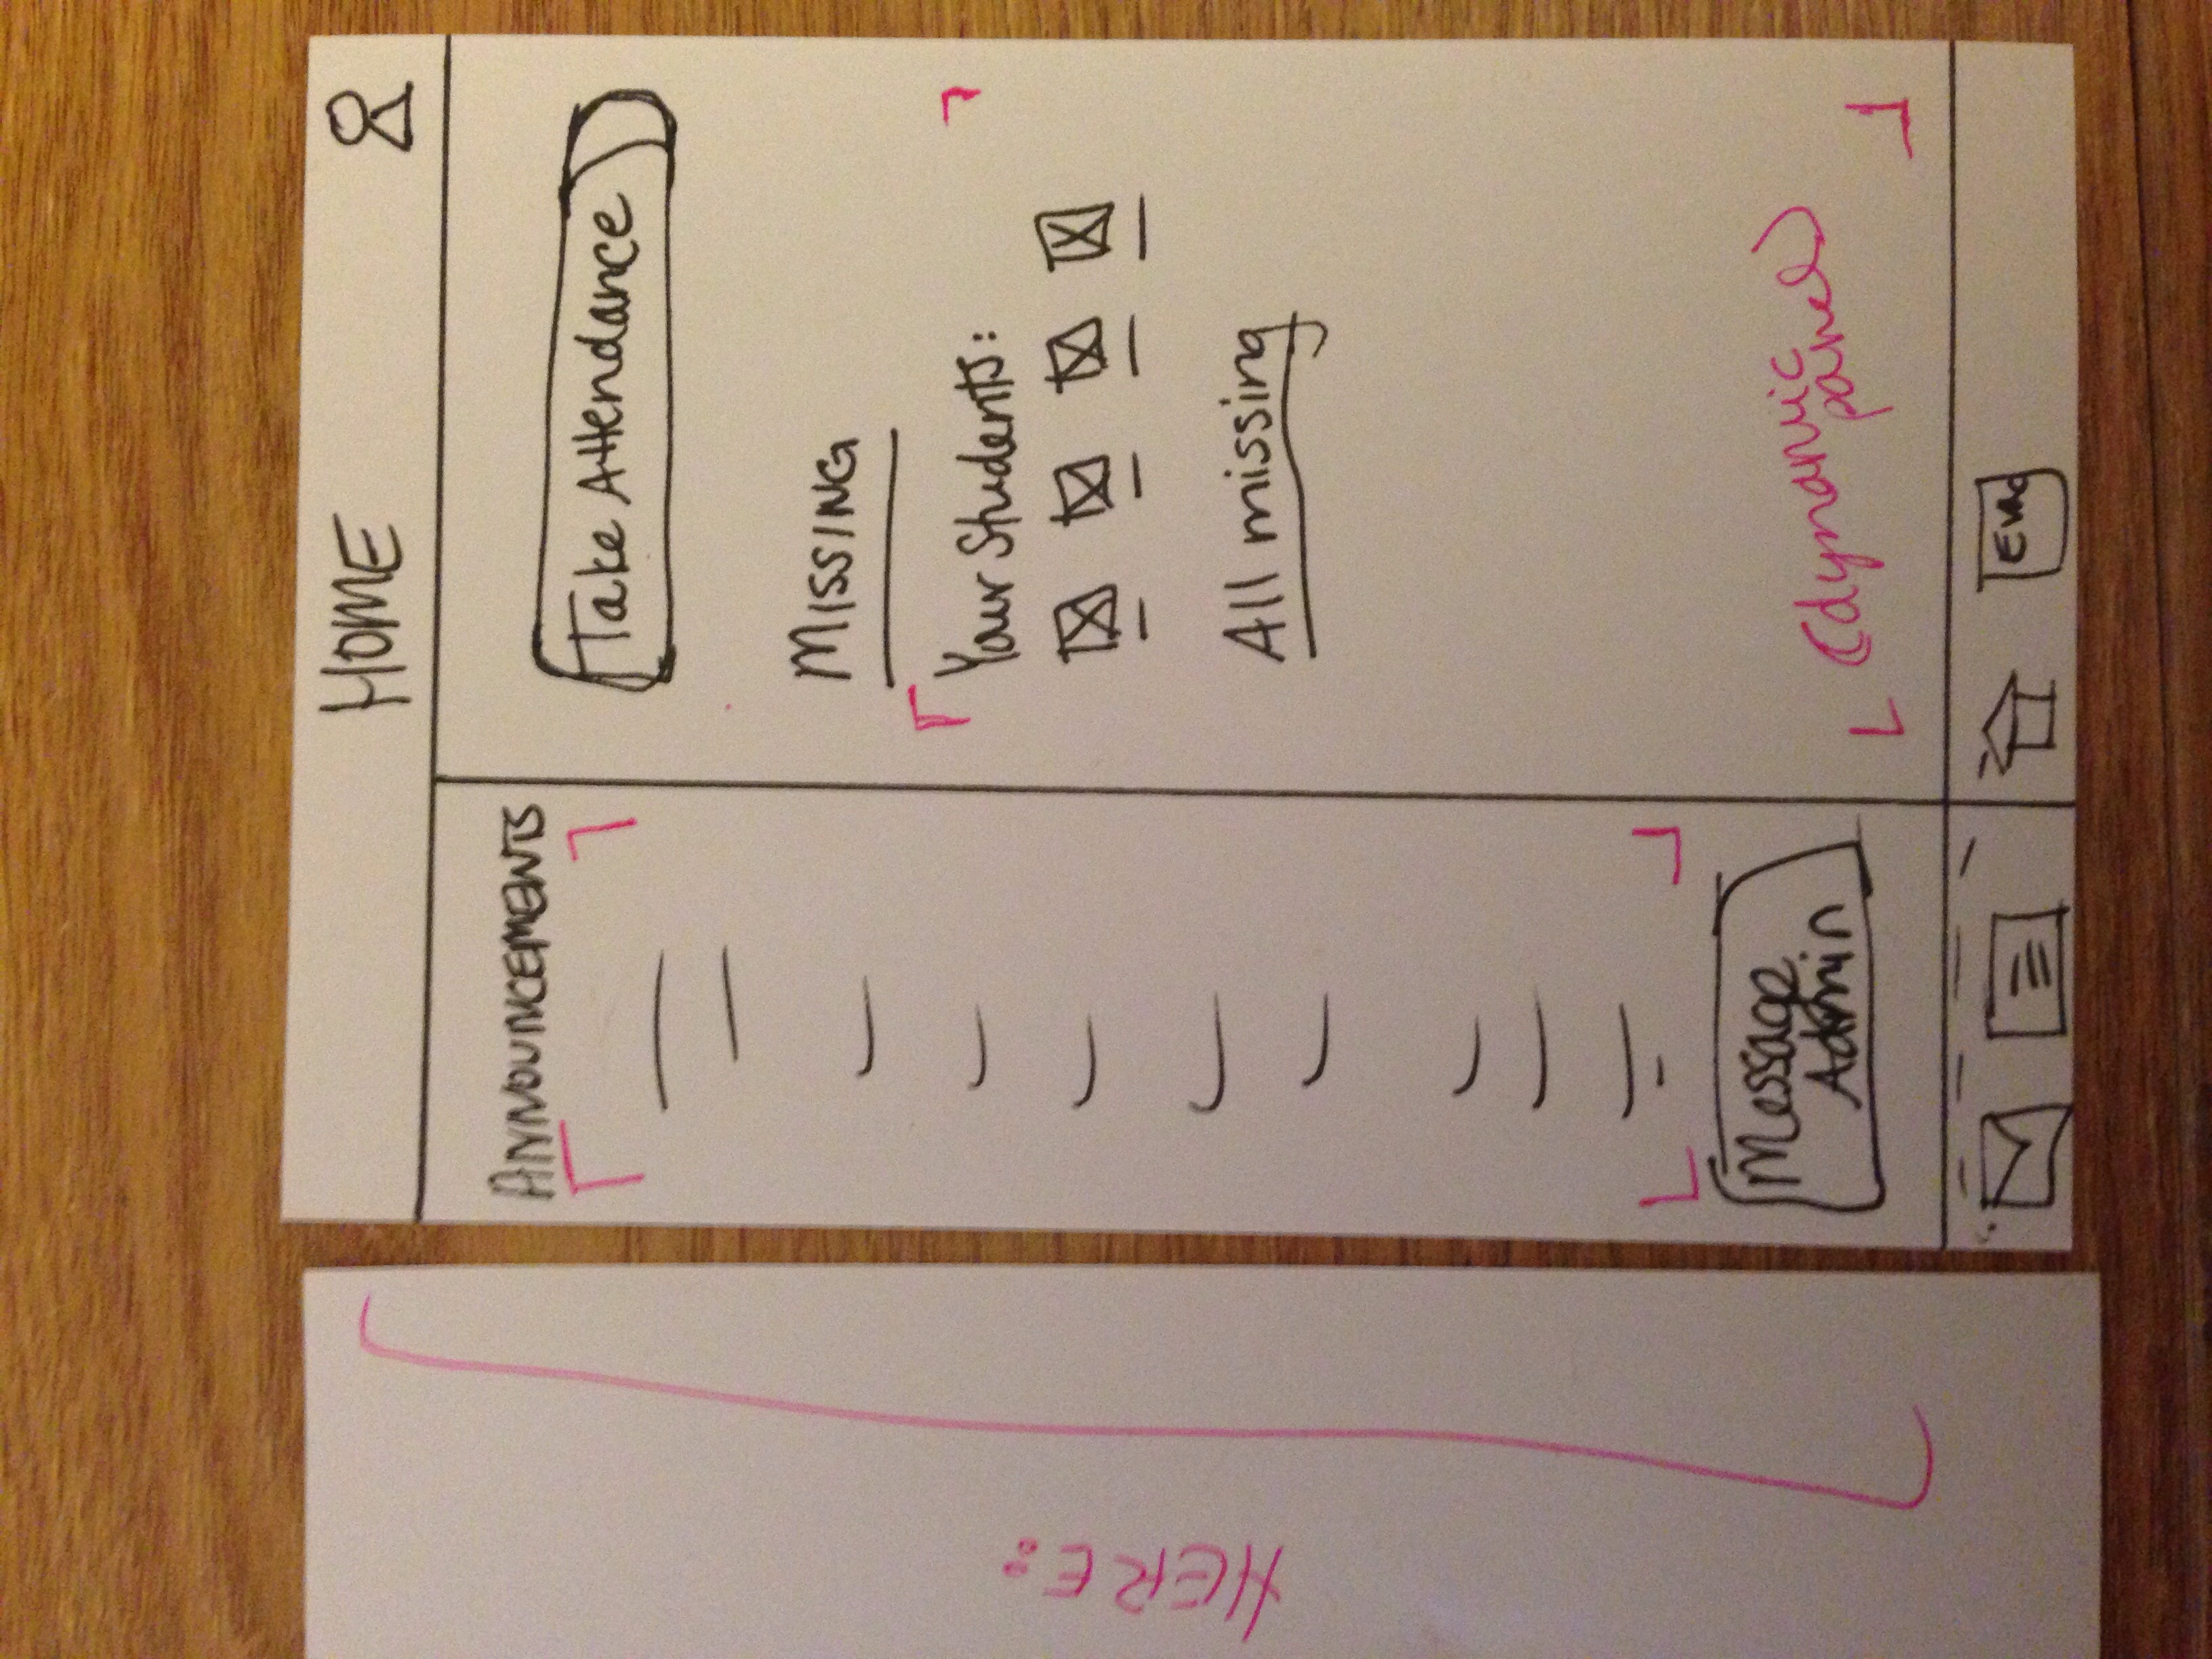 HERE:
HOME
ANNOUNCEMENTS
Message
Admin
Take Attendance
MISSING
Your Students:
All missing
(dynamic
panel)
EVAC